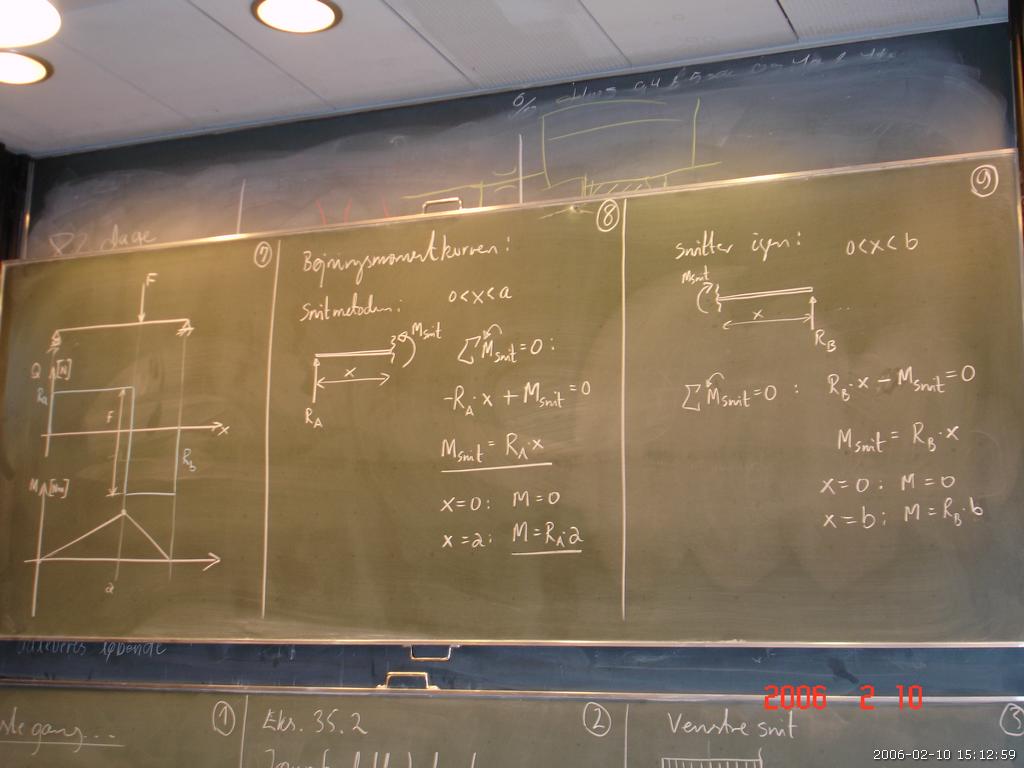 ⑦
F
Q [N]
R_A
F
x
R_B
M [Nm]
a
⑧
Bøjningsmomentkurven:
Snitmetoden: 0<x<a
M_snit
x
R_A
∑ M_snit = 0:
-R_A · x + M_snit = 0
M_snit = R_A · x
x=0: M=0
x=a: M=R_A·a
⑨
snitter igen: 0<x<b
M_snit
x
R_B
∑ M_snit = 0 : R_B · x - M_snit = 0
M_snit = R_B · x
x=0: M=0
x=b: M=R_B·b
① Eks. 35.2 ② Venstre snit ③
2006 2 10
2006-02-10 15:12:59